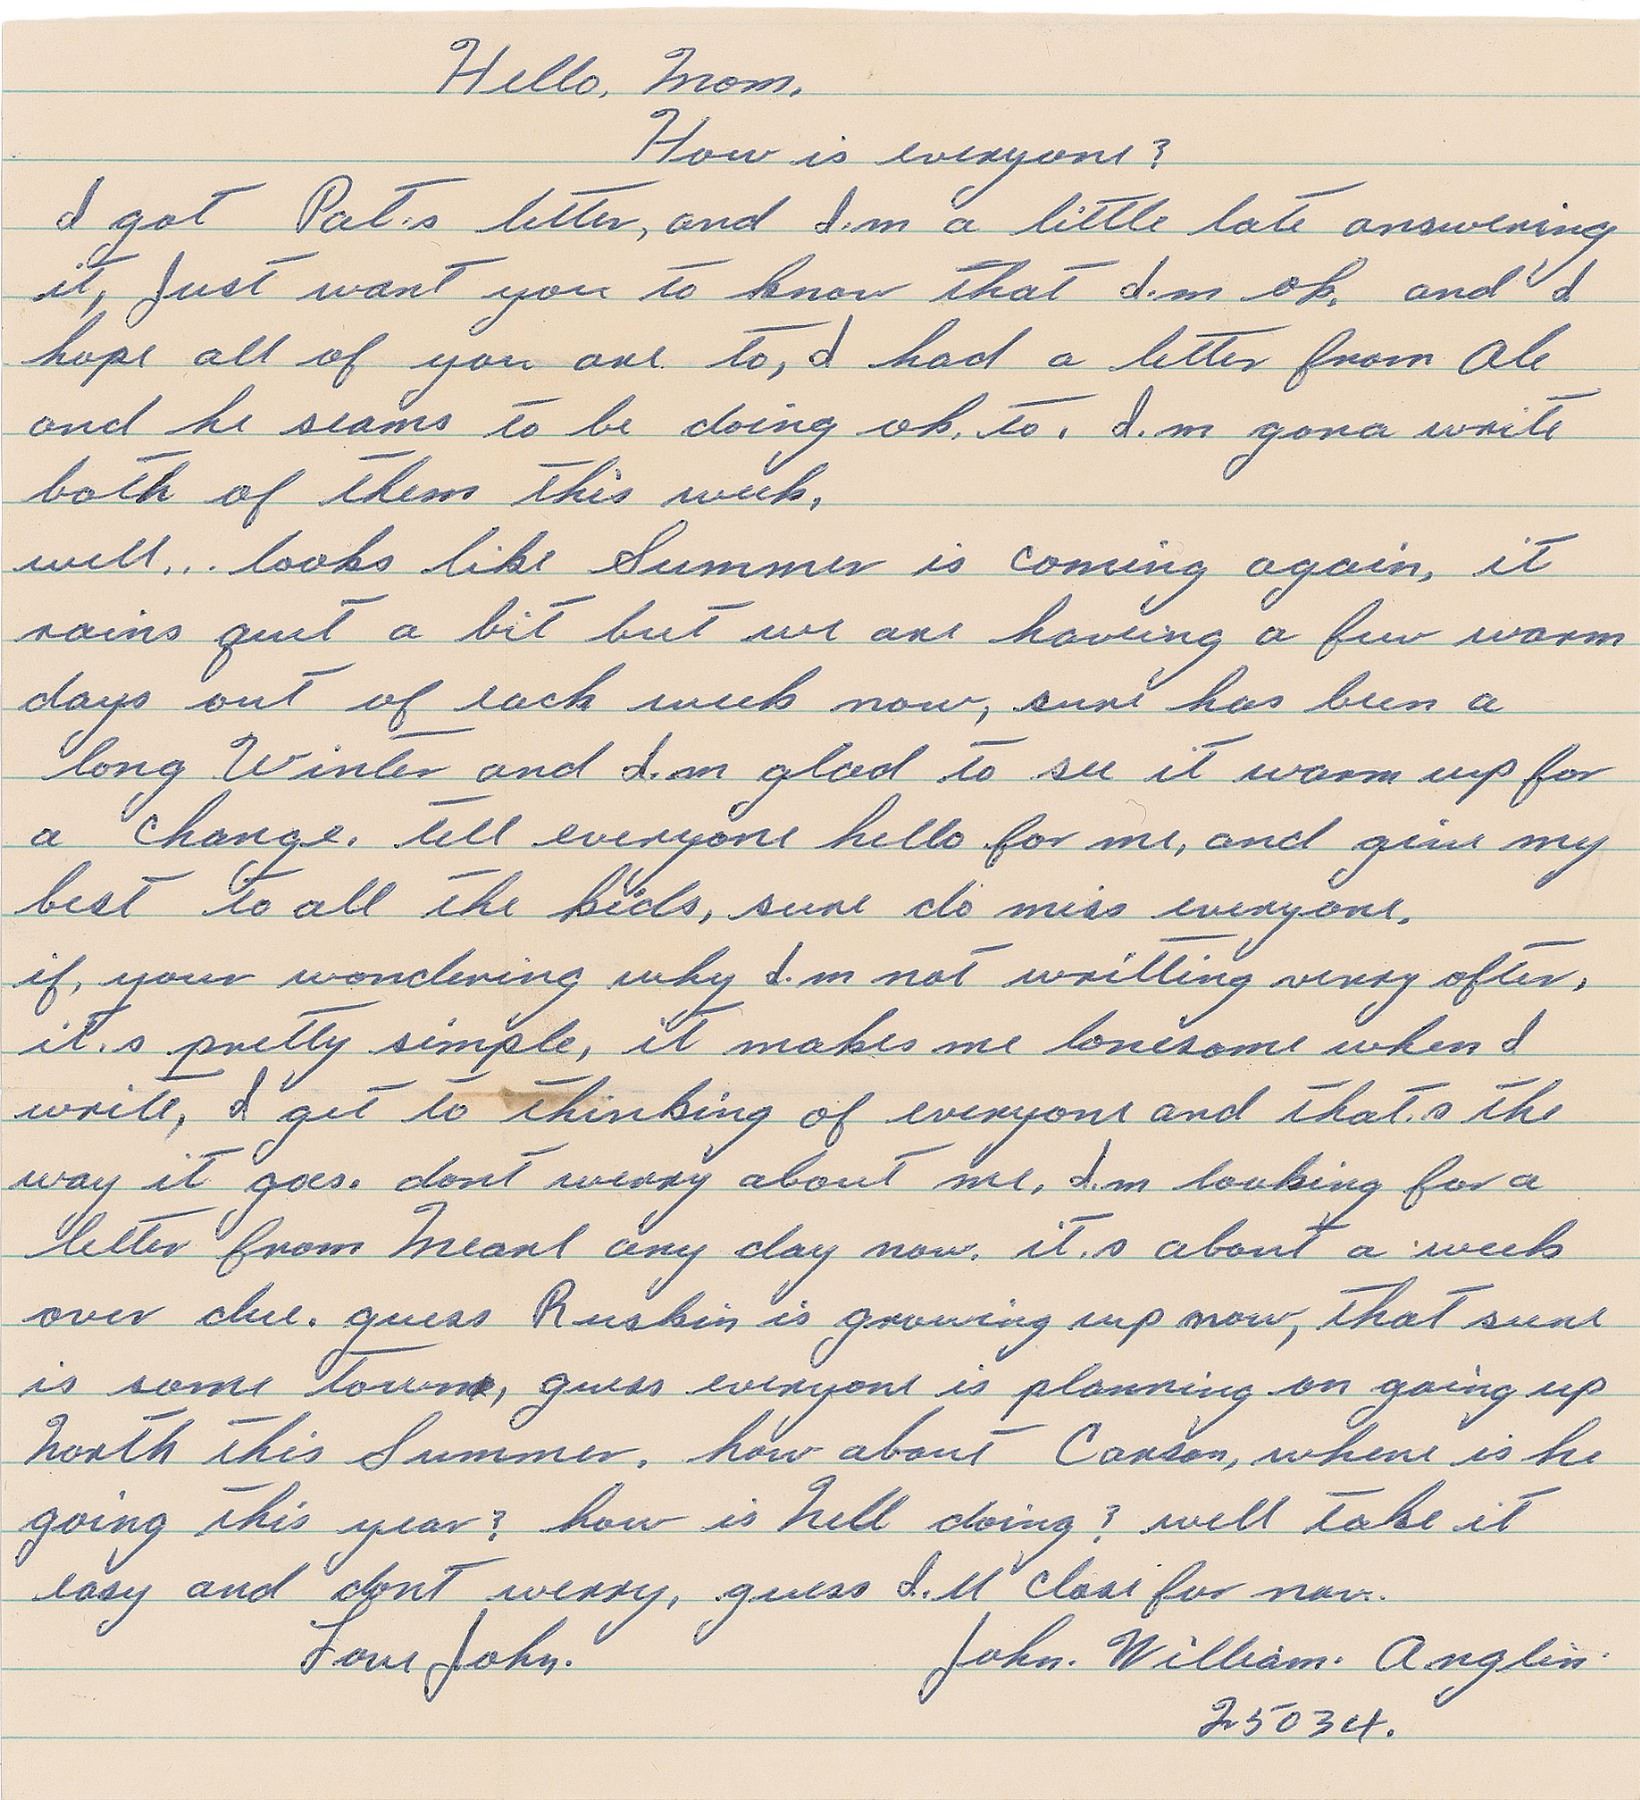 Hello, Mom.
How is everyone?
I got Pat.s letter, and I.m a little late answering
it, Just want you to know that I.m ok. and I
hope all of you are to, I had a letter from Ale
and he seams to be doing ok. to. I.m gona write
both of them this week.
well... looks like Summer is coming again, it
rains quit a bit but we are haveing a few warm
days out of each week now, sure has been a
long Winter and I.m glad to see it warm up for
a change. tell everyone hello for me, and give my
best to all the kids, sure do miss everyone.
if, your wondering why I.m not writting verry often,
it.s pretty simple, it makes me lonesome when I
write, I get to thinking of everyone and that.s the
way it goes. dont werry about me. I.m looking for a
letter from Mearl any day now. it.s about a week
over due. guess Ruskin is growing up now, that sure
is some town, guess everyone is planning on going up
North this Summer. how about Carson, where is he
going this year? how is Nell doing? well take it
easy and dont werry, guess I.ll close for now.
Love John. John. William. Anglin.
25034.